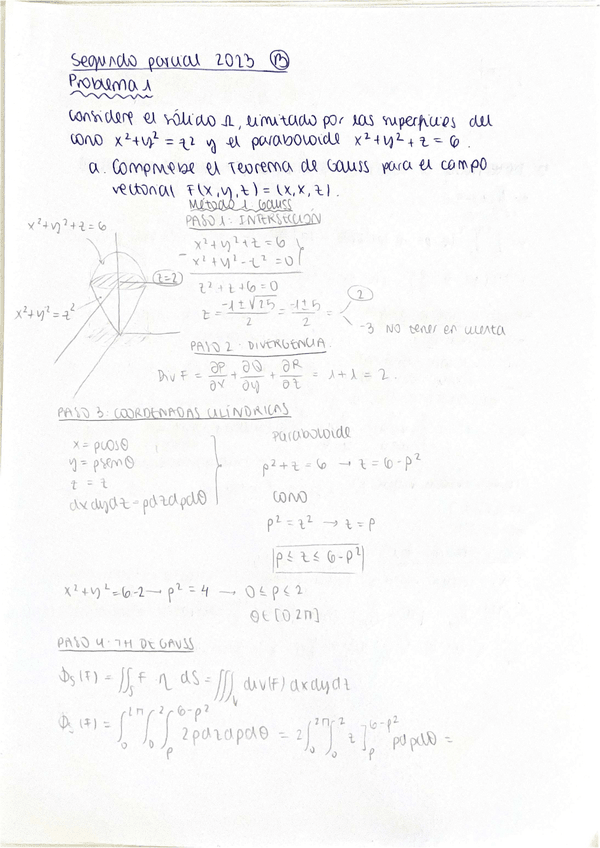 Segundo parcial 2023 Ⓑ
Problema 1
Considere el sólido Ω, limitado por las superficies del
cono x²+y² = z² y el paraboloide x²+y²+z = 6.
a. Compruebe el Teorema de Gauss para el campo
vectorial F(x,y,z) = (x,x,z).
Método 1 Gauss
PASO 1: INTERSECIÓN
x²+y²+z=6
x²+y²+z=6
- x²+y²-z²=0
z=2
z²+z+6=0
x²+y²=z²
z = -1±√25/2 = -1±5/2 = 2
-3 NO tener en cuenta
PASO 2: DIVERGENCIA.
Div F = ∂P/∂x + ∂Q/∂y + ∂R/∂z = 1+1 = 2.
PASO 3: COORDENADAS CILÍNDRICAS
x = ρcosθ
y = ρsenθ
z = z
dxdydz = ρdzdρdθ
paraboloide
ρ²+z=6 → z=6-ρ²
cono
ρ²=z² → z=ρ
ρ ≤ z ≤ 6-ρ²
x²+y²=6-2 → ρ²=4 → 0≤ρ≤2
θ∈[0,2π]
PASO 4: TH DE GAUSS
Φs(F) = ∬s F η dS = ∭v div(F) dxdydz
Φs(F) = ∫₀^2π ∫₀^2 ∫ρ^6-ρ² 2ρdzdρdθ = 2∫₀^2π ∫₀^2 z]ρ^6-ρ² ρdρdθ =